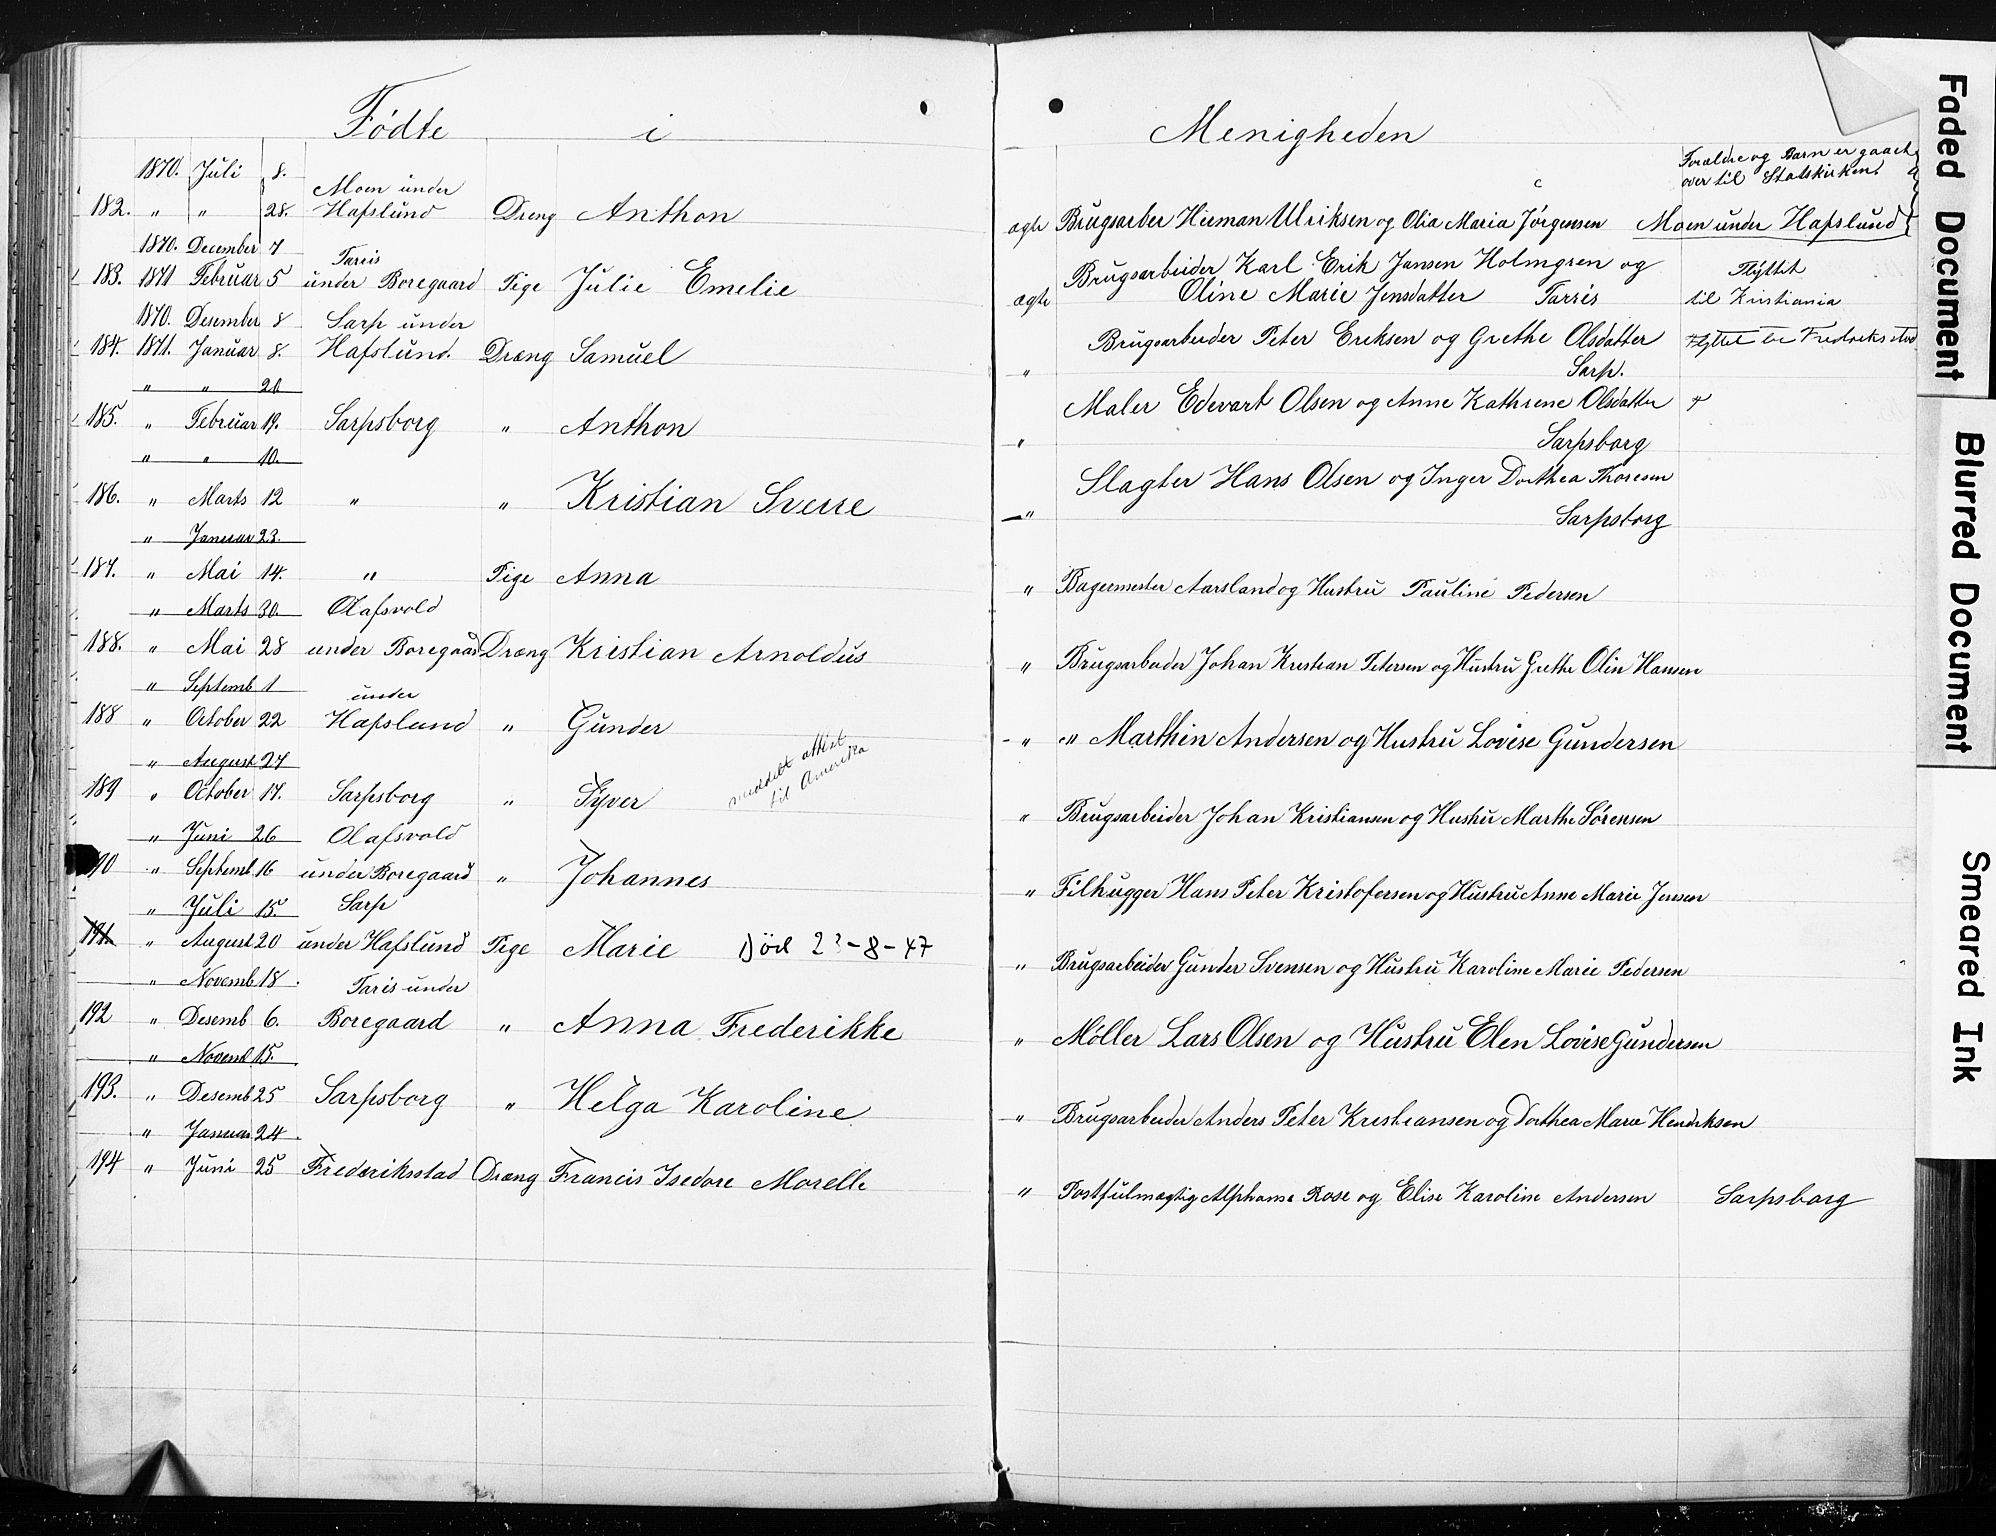 Fødte i Menigheden
1870. Juli 8. Moen under Forældre og Barn er gaaet
over til Statskirken.
182. " " 28. Hafslund Dreng Anthon ægte Brugsarber Herman Ulriksen og Olia Maria Jørgensen Moen under Hafslund
1870. December 7 Taris
183. 1871 Februar 5 under Boregaard Pige Julie Emelie ægte Brugsarbeider Karl Erik Jansen Holmgren og Flyttet
Oline Marie Jensdatter Tarris til Kristiania
1870. Desember 8 Sarp under
184. 1871. Januar 8. Hafslund. Dræng Samuel " Brugsarbeider Peter Eriksen og Grethe Olsdatter Flyttet til Fredrikstad
Sarp.
" " 20
185. " Februar 19. Sarpsborg " Anthon " Maler Edevart Olsen og Anne Kathrene Olsdatter
Sarpsborg
" " 10.
186. " Marts 12 " " Kristian Sverre " Slagter Hans Olsen og Inger Dorthea Thoresen
Sarpsborg
" Januar 23.
187. " Mai 14. " Pige Anna " Bagermester Aarsland og Hustru Pauline Pedersen
" Marts 30. Olafsvold
188. " Mai 28 under Boregaard Dræng Kristian Arnoldus " Brugsarbeider Johan Kristian Petersen og Hustru Grethe Olin Hansen
" Septemb 1 under
188 " October 22 Hafslund " Gunder " " Marthin Andersen og Hustru Lovise Gundersen
" August 27 meddelt attest
til Amerika
189 " October 17. Sarpsborg " Syver " Brugsarbeider Johan Kristiansen og Hustru Marthe Sørensen
" Juni 26 Olafsvold
190 " Septemb 16 under Boregaard " Johannes " Filhugger Hans Peter Kristofersen og Hustru Anne Marie Jensen
" Juli 15. Sarp
191. " August 20 under Hafslund Pige Marie Død 23-8-47 " Brugsarbeider Gunder Svensen og Hustru Karoline Marie Pedersen
" Novemb 18. Taris under
192 " Desemb 6. Boregaard " Anna Frederikke " Møller Lars Olsen og Hustru Elen Lovise Gundersen
" Novemb 15.
193. " Desemb 25 Sarpsborg " Helga Karoline " Brugsarbeider Anders Peter Kristiansen og Dorthea Marie Hendriksen
" Januar 24.
194 " Juni 25 Frederiksstad Dræng Francis Isedore Morelle " Postfulmægtig Alphonse Rose og Elise Karoline Andersen Sarpsborg
Faded Document
Blurred Document
Smeared Ink